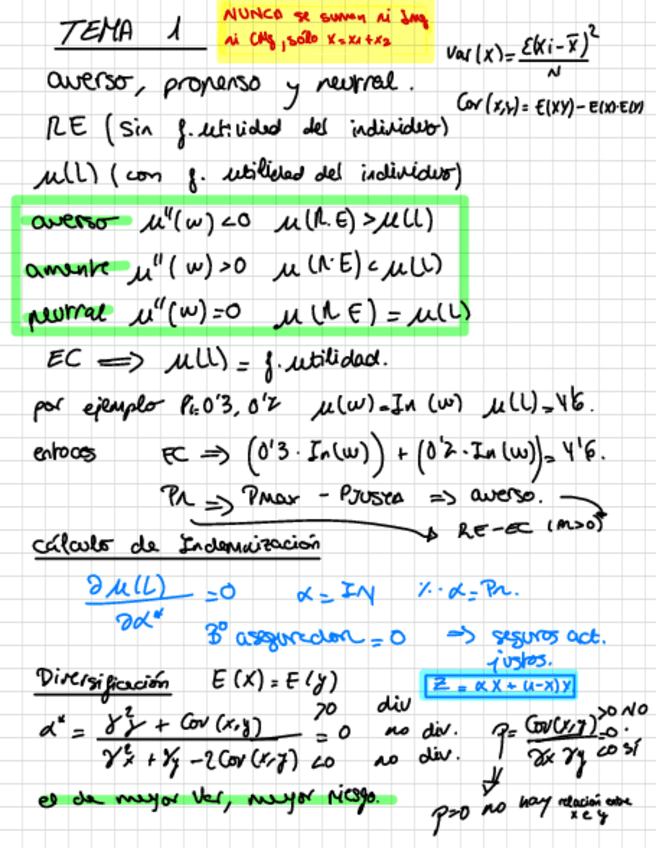 TEMA 1
NUNCA se suman ni Img
ni CMg, sólo x=x1+x2
Var(x)= Σ(xi-x̄)² / N
Cov(x,y)= E(XY)-E(X)·E(Y)
averso, propenso y neutral.
RE (sin f. utilidad del individuo)
μ(L) (con f. utilidad del individuo)
averso μ''(w)<0 μ(R.E)>μ(L)
amante μ''(w)>0 μ(R.E)<μ(L)
neutral μ''(w)=0 μ(R.E)=μ(L)
EC ⟹ μ(L) = f. utilidad.
por ejemplo Pi=0'3, 0'2 μ(w)=In(w) μ(L)=4'6.
entoces EC ⇒ (0'3·In(w)) + (0'2·In(w))=4'6.
Pr ⇒ Pmax - Pjusta ⇒ averso.
RE-EC (m>0)
cálculo de Indemnización
∂μ(L) / ∂α* =0 α = IN %·α=Pr.
Bº asegurador=0 ⇒ seguros act.
justos.
Diversificación E(x)=E(y)
Z = αX+(1-α)Y
α* = (γ²y + Cov(x,y)) / (γ²x + γy - 2Cov(x,y)) >0 div
=0 no div.
<0 no div.
ρ= Cov(x,y) / γx γy >0 NO
=0.
<0 sí
el de mayor Var, mayor riesgo.
ρ=0 no hay relación entre
x e y